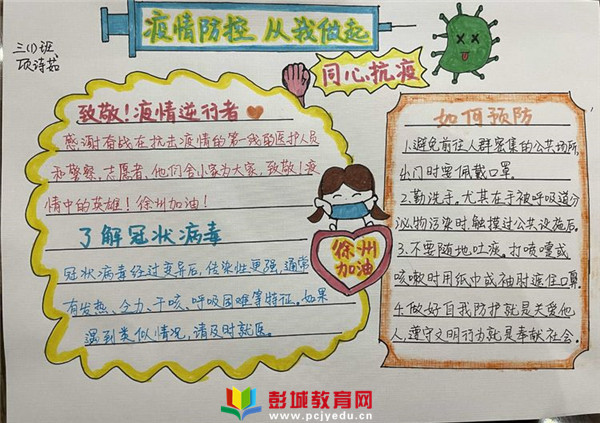 三(1)班、
项诗茹
疫情防控 从我做起
同心抗疫
致敬！疫情逆行者
感谢奋战在抗击疫情的第一线的医护人员
和警察、志愿者，他们舍小家为大家，致敬！疫
情中的英雄！徐州加油！
了解冠状病毒
冠状病毒经过变异后，传染性更强，通常
有发热、乏力、干咳、呼吸困难等特征。如果
遇到类似情况，请及时就医。
徐州
加油
如何预防
1.避免前往人群密集的公共场所，
出门时要佩戴口罩。
2.勤洗手。尤其在手被呼吸道分
泌物污染时、触摸过公共设施后。
3.不要随地吐痰。打喷嚏或
咳嗽时用纸巾或袖肘遮住口鼻。
4.做好自我防护就是关爱他
人，遵守文明行为就是奉献社会。
彭城教育网
www.pcjyedu.cn